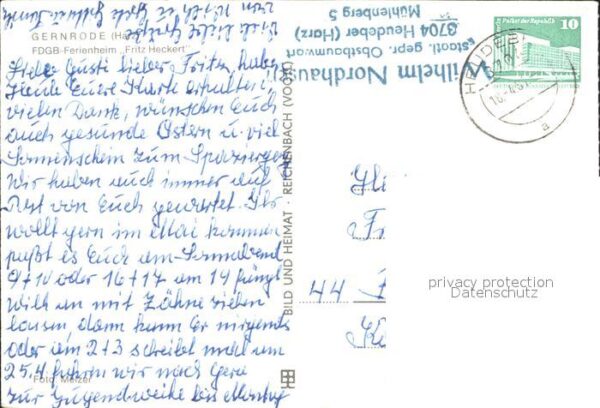 GERNRODE (Ha
FDGB-Ferienheim „Fritz Heckert“
Liebe Gusti lieber Fritz, haben
heute Eure Karte erhalten,
vielen Dank, wünschen Euch
auch gesunde Ostern u. viel
Sonnenschein zum Spazierengehen
Wir haben auch immer auf
Post von Euch gewartet. Ihr
wollt gern im Mai kommen
paßt es Euch am Sonnabend
9+10 oder 16+17 am 14 fängt
Willi an mit Zähne ziehen
lassen, dann kann Er nirgends
oder am 2+3 schreibt mal am
25.4 fahren wir nach Gera
zur Jugendweihe bis Montag
Foto: Melzer
BILD UND HEIMAT · REICHENBACH (VOGTL)
Wilhelm Nordhau
staatl. gepr. Obstbaumwart
3704 Heudeber (Harz)
Mühlenberg 5
Palast der Republik
10
DDR
44
privacy protection
Datenschutz